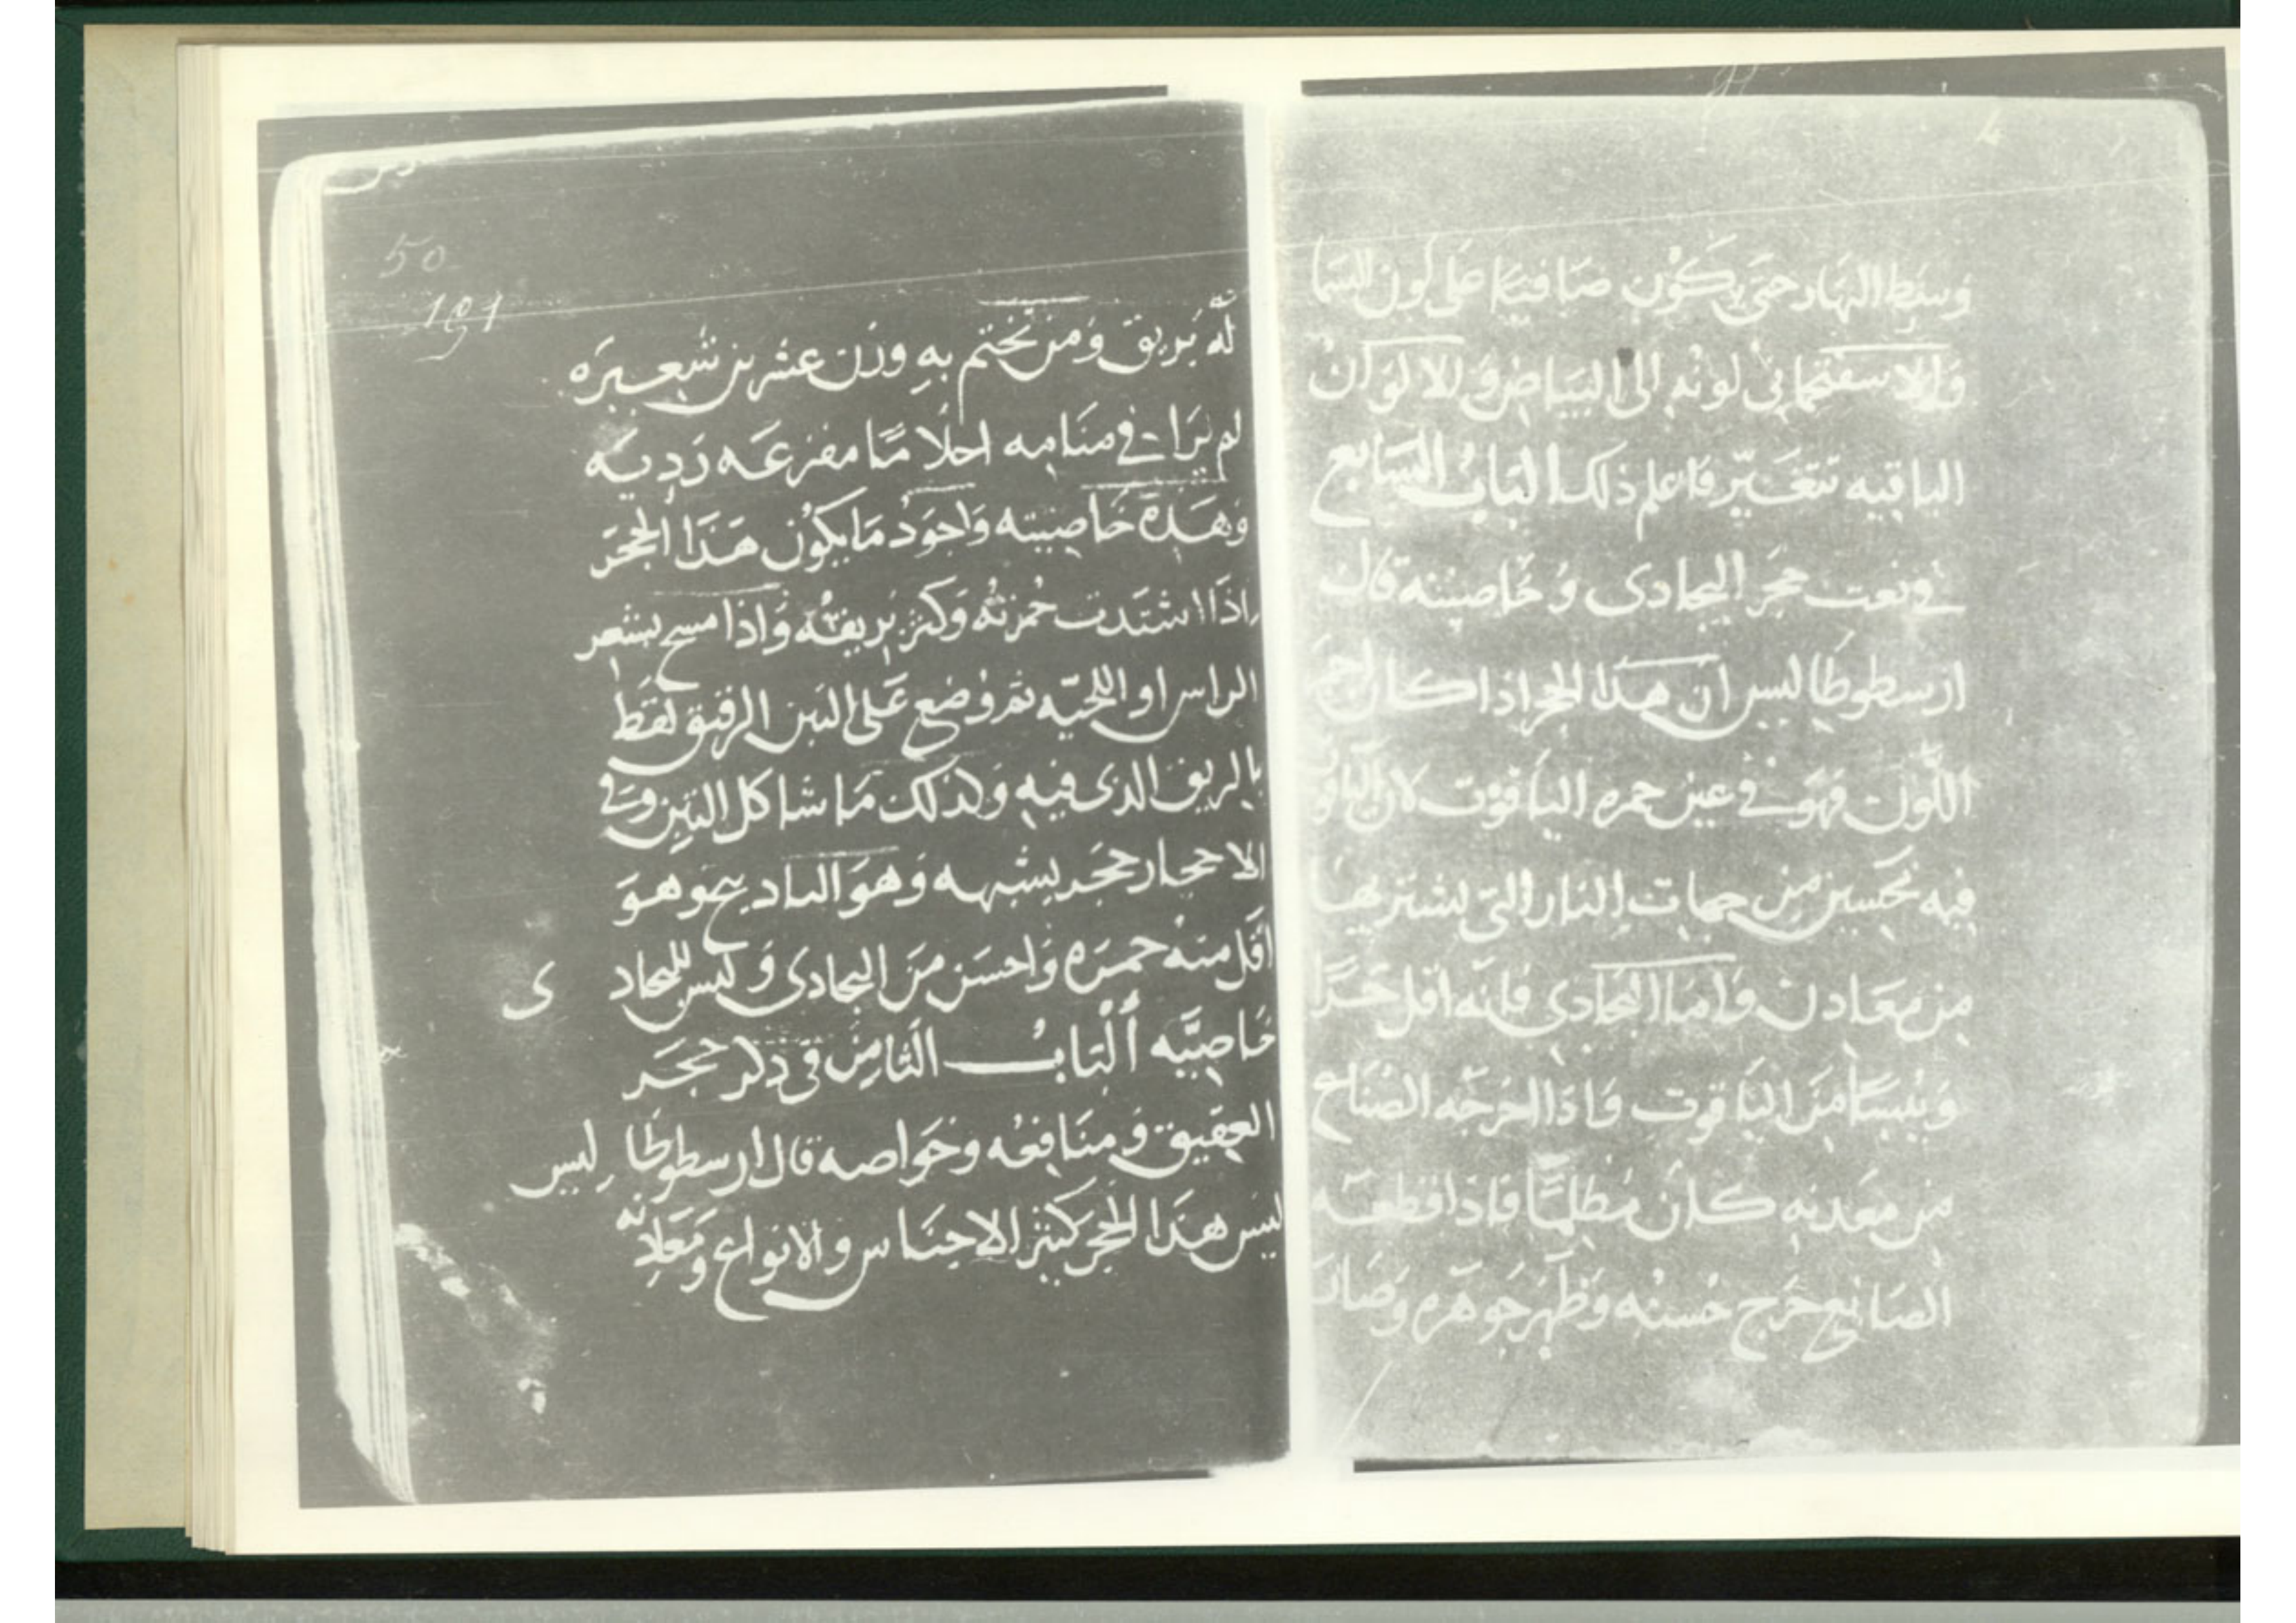 وسط النهار حتى يكون صافيا على لون السما
والا سفتحما في لونه الى البياض وللالوان
الباقيه تتغير فاعلم ذلك الباب السابع
في نعت حجر البجادى وخاصيته قال
ارسطوطاليس ان هذا الحجر اذا كان احمر
اللون فهو في عين حمره الياقوت لان الياقوت
فيه تحسين من جهات النار التي يشتريها
من معادن واما البجادي فانه اقل حرا
ويبسا من الياقوت فاذا اخرجه الصناع
من معدنه كان مظلما فاذا قطعه
الصانع خرج حسنه وظهر جوهره وصار
50
191
له بريق ومن تختم به وزن عشرين شعيره
لم يرا في منامه احلاما مفزعه رديه
وهذه خاصيته واجود ما يكون هذا الحجر
اذا اشتدت حمرته وكثر بريقه واذا مسح بشعر
الراس او اللحيه ثم وضع على التبن الرقيق لقط
بالريق الذى فيه وكذلك ما شاكل التبن وفي
الاحجار حجر يشبهه وهو المادينج وهو
اقل منه حمره واحسن من البجادى وليس للبجادى
خاصيه الباب الثامن في ذكر حجر
العقيق ومنافعه وخواصه قال ارسطوطا ليس
ليس هذا الحجر كثير الاجناس والانواع ومعادنه